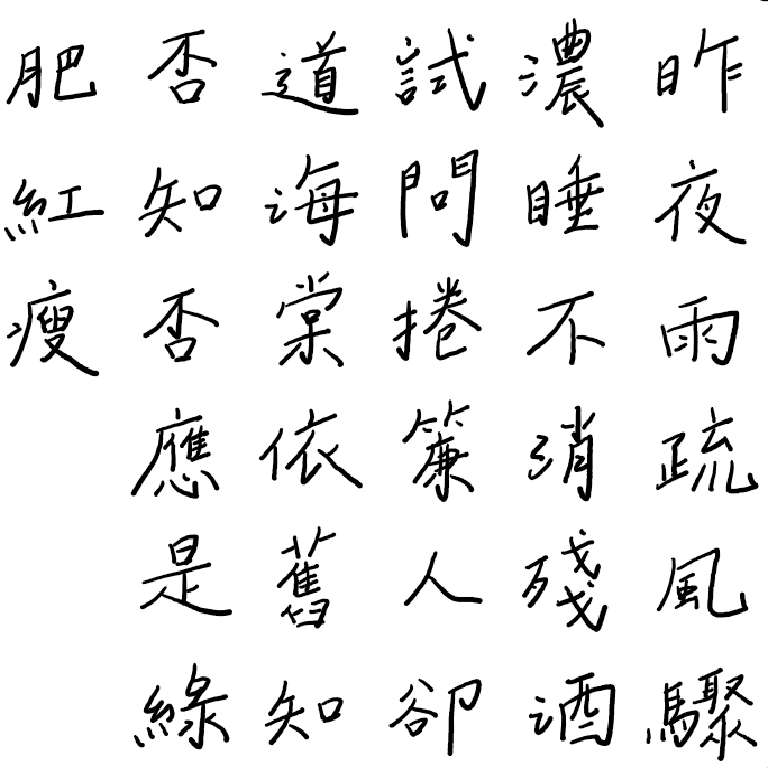 昨夜雨疏風驟
濃睡不消殘酒
試問捲簾人卻
道海棠依舊知
否知否應是綠
肥紅瘦